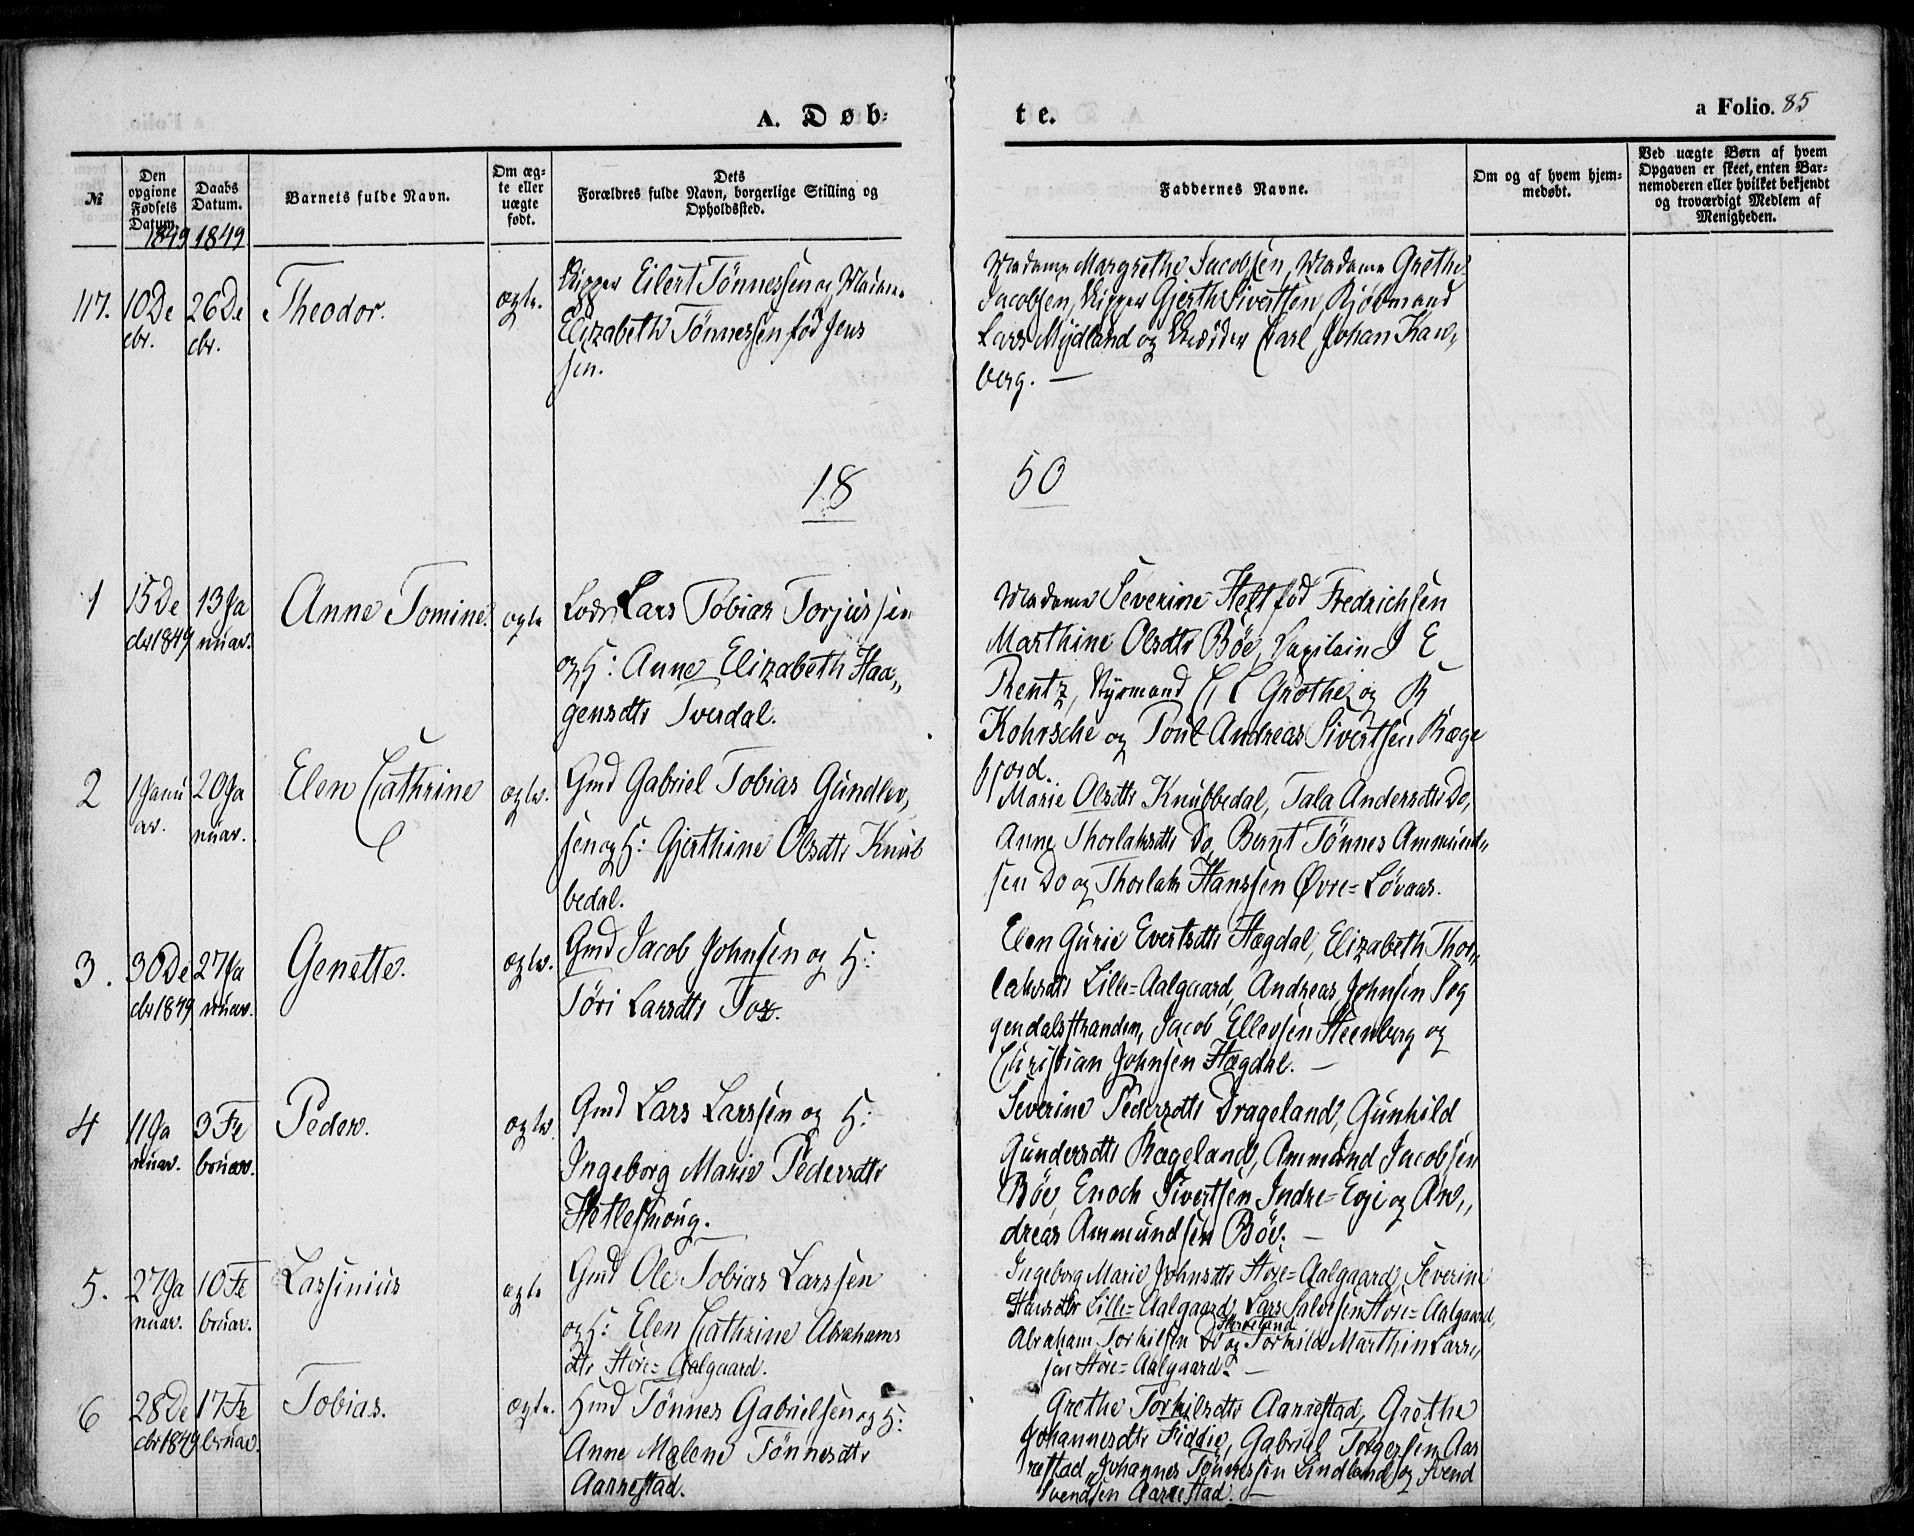 A. Døb-
te.
a Folio. 85
№
Den opgivne Fødsels Datum.
Daabs Datum.
Barnets fulde Navn.
Om æg-te eller uægte født.
Dets Forældres fulde Navn, borgerlige Stilling og Opholdssted.
Faddernes Navne.
Om og af hvem hjem-medøbt.
Ved uægte Børn af hvem Opgaven er skeet, enten Bar-nemoderen eller hvilket bekjendt og troværdigt Medlem af Menigheden.
1849 1849
117. 10 De 26 De Theodor. ægte. Skipper Eilert Tønnessen og Madam
cbr. cbr. Elizabeth Tønnessen fød Jens
sen.
Madame Margrethe Jacobsen, Madame Grethe
Jacobsen, Skipper Gjerth Sivertsen Kjøbmand
Lars Mydland og Skrædder Carl Johan
berg. —
18 50
1 15 De 13 Ja Anne Tomine. ægte Lods Lars Tobias Torjussen
cbr 1849 nuar. og H: Anne Elizabeth Haa„
gensdtr Tverdal.
Madame Severine Heft fød Fredrichsen
Marthine Olsdtr Bøe, Capitain J E
Rentz, Styrmand C C Grothe og R
Kohrsche og Poul Andreas Sivertsen Ræge
fjord.
2 1 Janu 20 Ja Elen Cathrine ægte. Gmd Gabriel Tobias Gundlev„
ar. nuar. sen og H: Gjerthine Olsdtr Knub
bedal.
Marie Olsdtr Knubbedal, Tala Andersdtr Do,
Anne Thorlaksdtr Do, Bernt Tønnes Ammund„
sen Do og Thorlak Hanssen Øvre=Løvaas.
3. 30 De 27 Ja Genette. ægte. Gmd Jacob Johnsen og H:
cbr 1849 nuar. Töri Larsdtr Fox.
Elen Gurie Evertsdtr Hægdal, Elizabeth Thor„
laksdtr Lille=Aalgaard, Andreas Johnsen Sog
gendalsstranden, Jacob Ellevsen Steenberg og
Christian Johnsen Hægdal. —
4 11 Ja 3 Fe Peder. ægte. Gmd Lars Larssen og H:
nuar. bruar. Ingeborg Marie Pedersdtr
Hetlesmoug.
Severine Pedersdtr Drageland, Gunhild
Gundersdtr Rægeland, Ammund Jacobsen
Bøe, Enoch Sivertsen Indre=Eye og An„
dreas Ammundsen Bøe. —
5. 27 Ja 10 Fe Lassinius ægte Gmd Ole Tobias Larssen
nuar. bruar. og H: Elen Cathrine Abrahams
dtr Store=Aalgaard.
Ingeborg Marie Johnsdtr Store=Aalgaard, Severine
Hansdtr Lille=Aalgaard, Lars Salvesen Store=Aalgaard,
Abraham Torkilsen Do og Torkild Marthin Lars„
sen Store=Aalgaard. —
6 28 De 17 Fe Tobias. ægte. Hmd Tønnes Gabrielsen og H:
cbr 1849 bruar. Anne Malene Tønnesdtr
Aarrestad.
Grethe Torkilsdtr Aarrestad, Grethe
Johannesdtr Fiddie, Gabriel Torgersen Aar
restad, Johannes Tønnessen Lindland og Svend
Svendsen Aarrestad. —